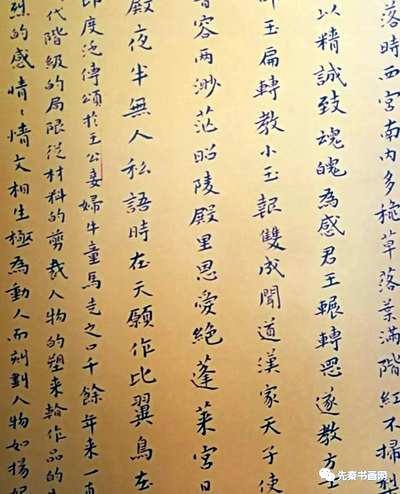 落時西宮南内多穐草落葉滿階紅不掃梨
以精誠致魂魄為感君王輾轉思遂教方士
玉扃轉教小玉報雙成聞道漢家天子使
音容兩渺茫昭陵殿里恩愛絕蓬萊宮日
殿夜半無人私語時在天願作比翼鳥在
印度泛傳頌於王公妾婦牛童馬走之口千餘年来一直
代階級的局限從材料的剪裁人物的塑来輪作品的
烈的感情〻情文相生極為動人而刻劃人物如楊妃
先秦书画网